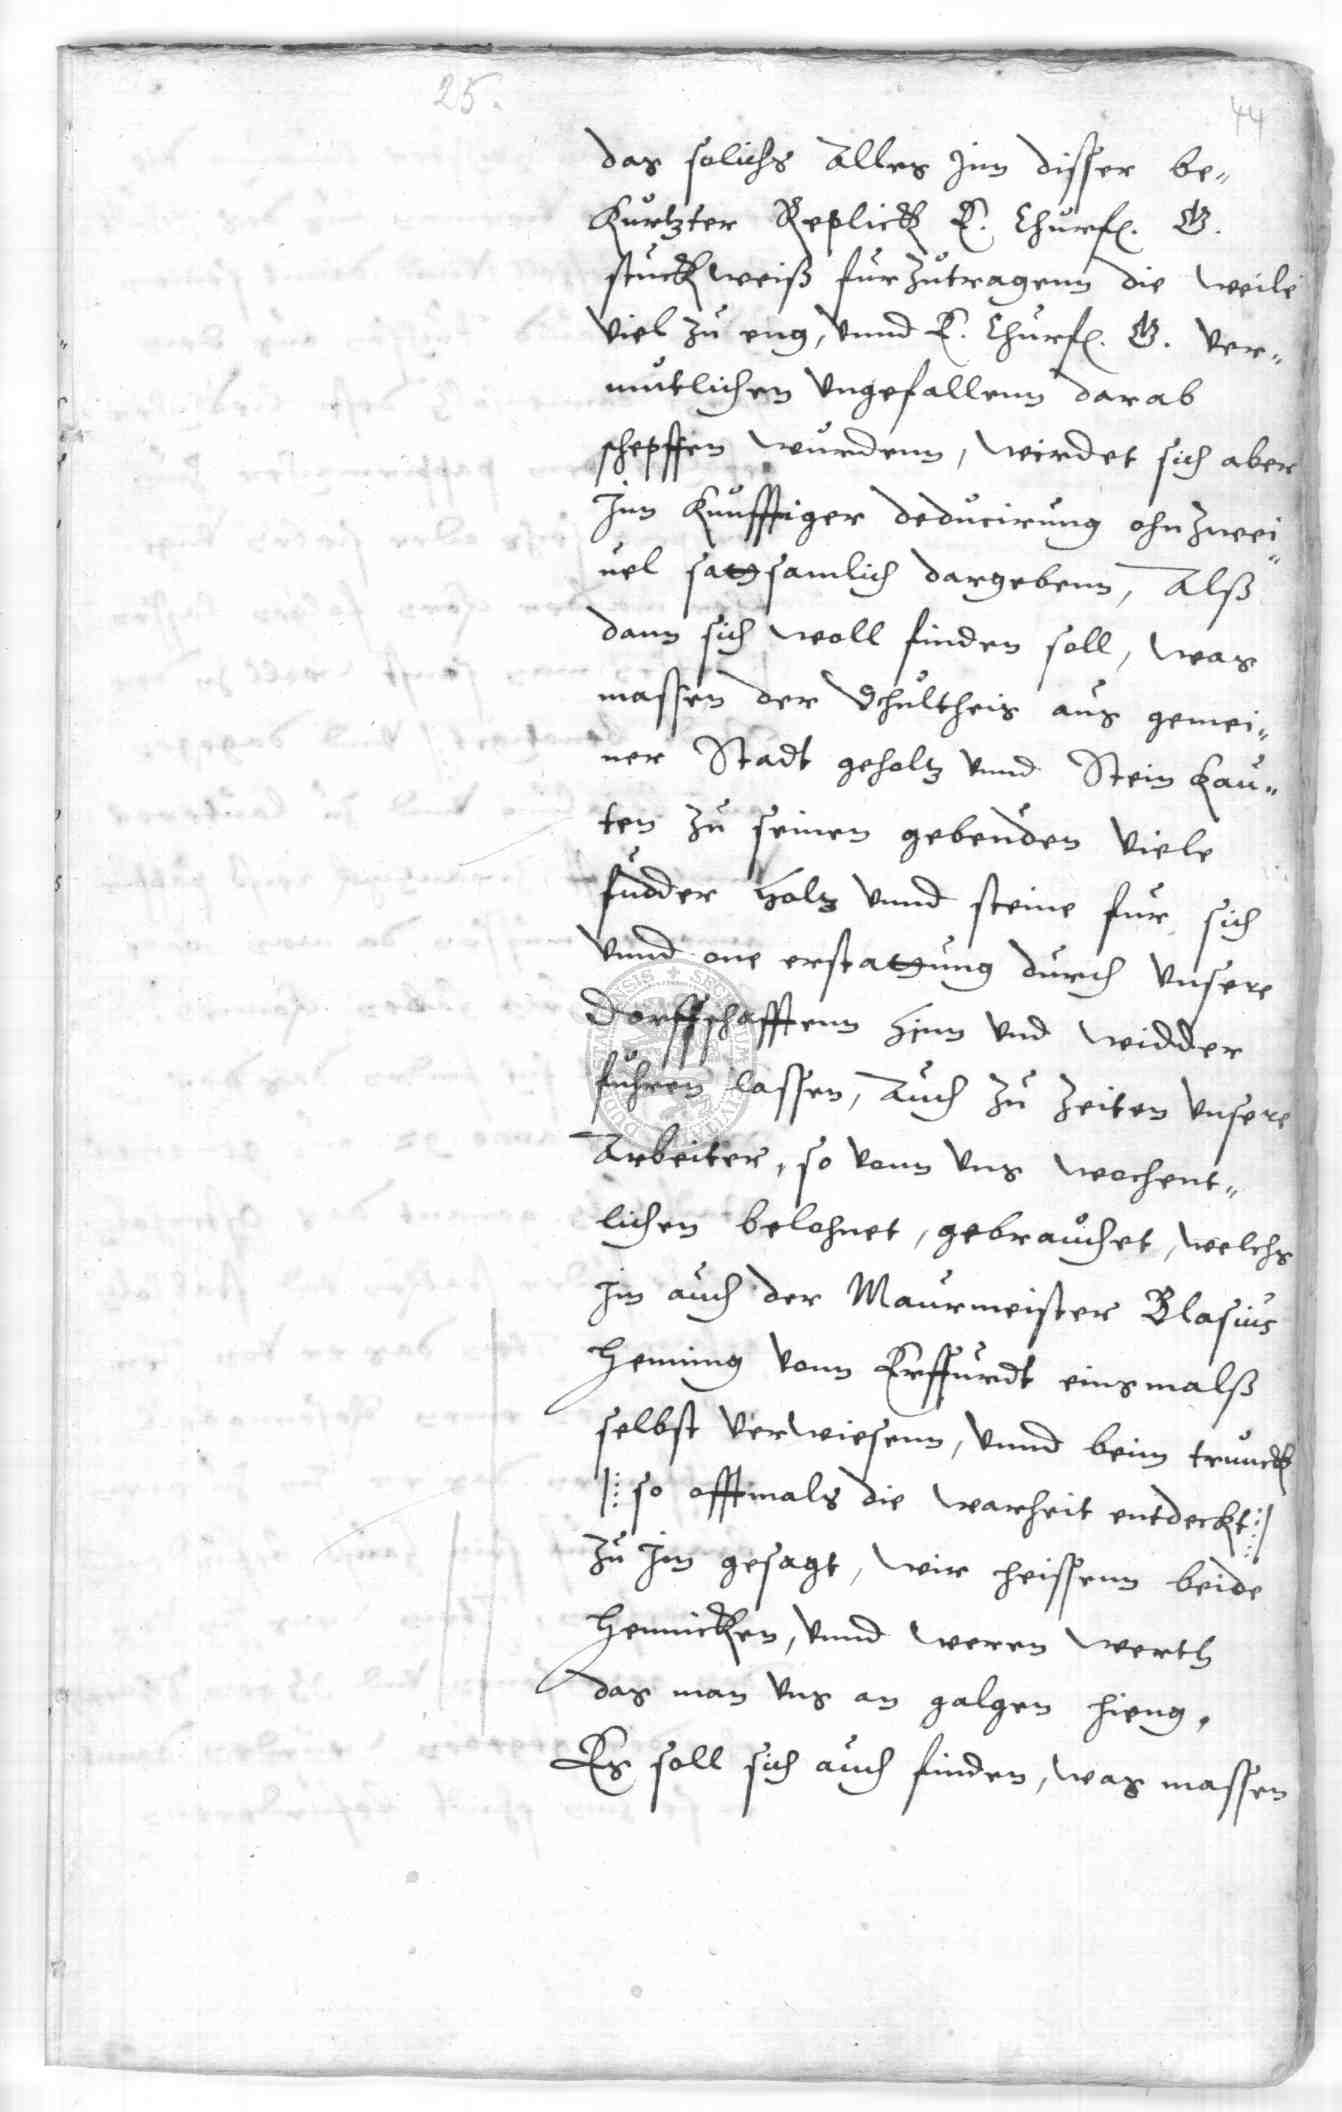 25.
44
das solichs Alles Inn disser be„
kurtzter Replickh E. Churf. G.
stuckhweiß furzutragenn die weile
viel zu eng, vnnd E. Churf. G. ver„
mutlichen vngefallenn darab
schepffen wurdenn, wirdet sich aber
Inn kunfftiger deducirung ohn zwei„
uel sattsamlich dargebenn, Alß
dann sich woll finden soll, was
massen der Schultheis aus gemei„
ner Stadt geholtz vnnd Stein kau„
ten zu seinen gebeuden viele
fudder holtz vnnd steine fur sich
vnnd one erstattung durch vnsere
Dorffschafftenn hinn vnd widder
fuhren lassen, Auch zu zeiten vnsere
Arbeiter, so vonn vns wochent„
lichen belohnet, gebrauchet, welchs
Im auch der Maurmeister Blasius
Henning vonn Erffurdt einsmalß
selbst verwiesenn, vnnd beim trunckh
|: so offtmals die warheit entdeckt :|
zu Im gesagt, wir heissenn beide
Hennicken, vnnd weren werth
das man vns an galgen hieng,
Es soll sich auch finden, was massen